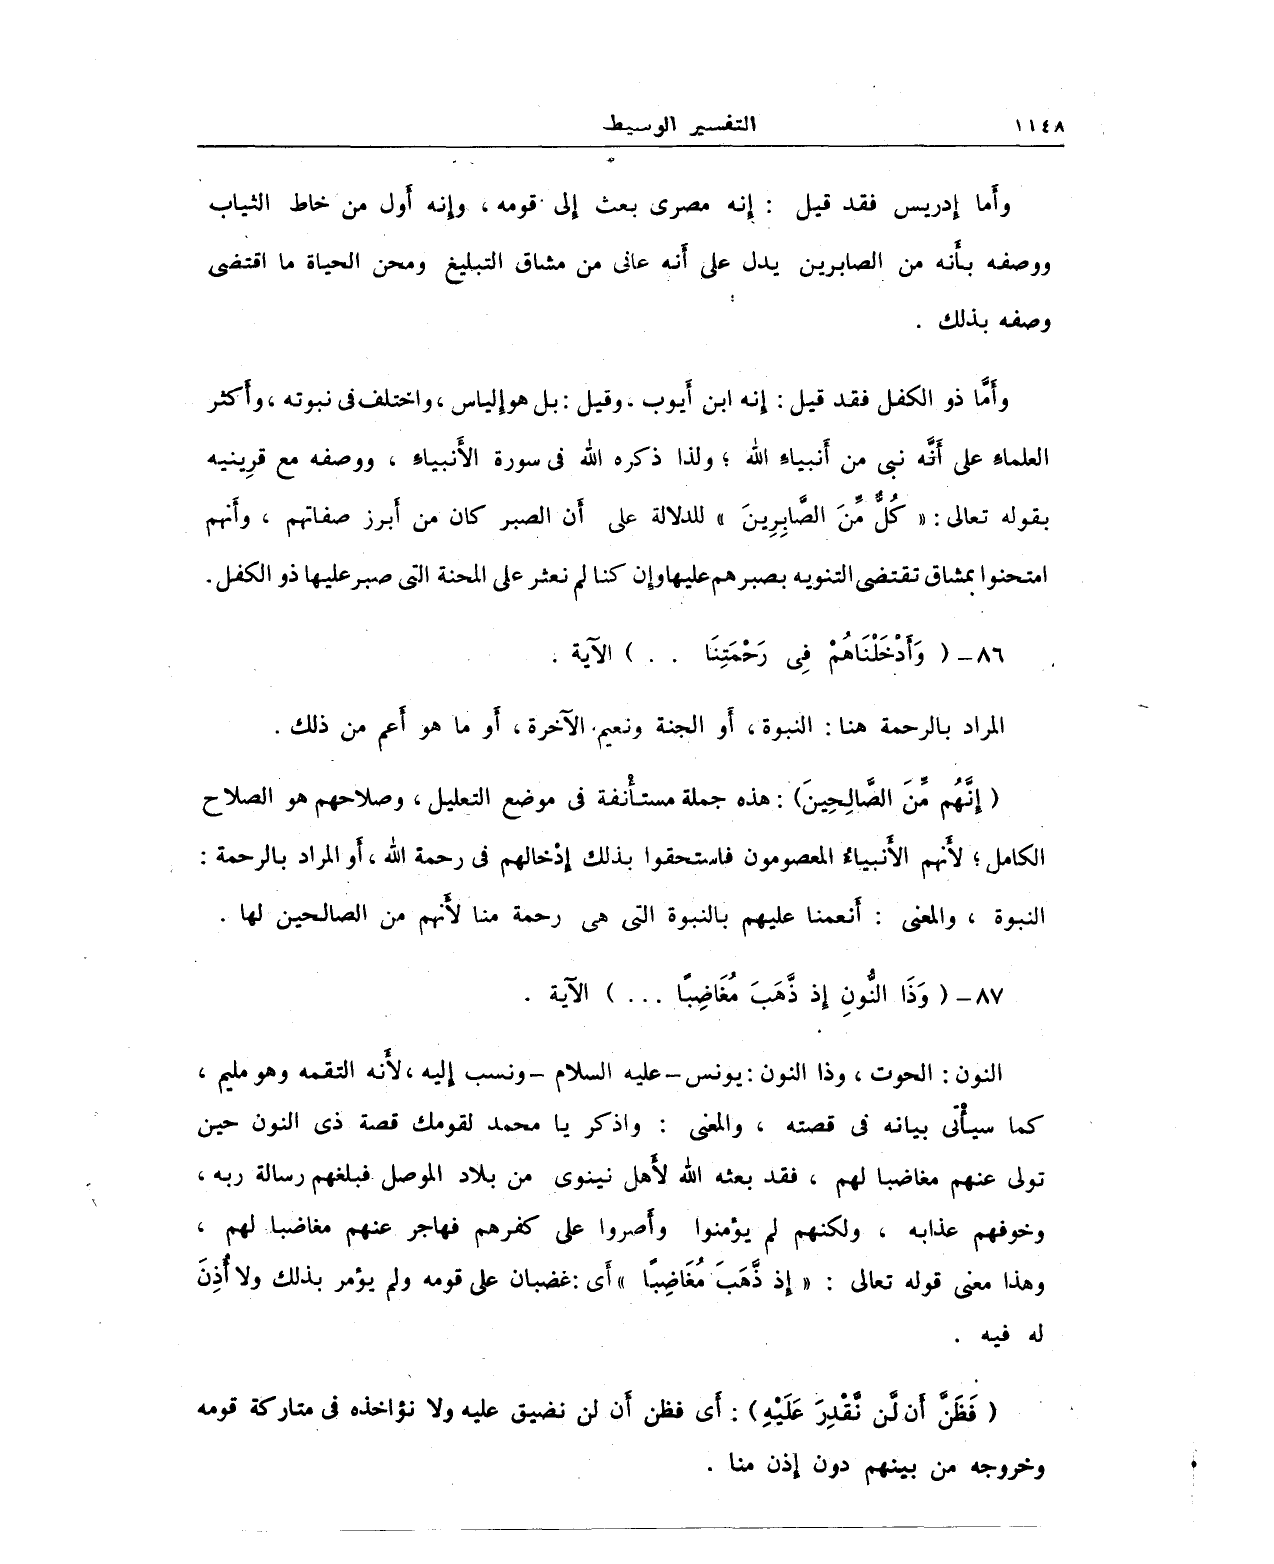 ١١٤٨ التفسير الوسيط
وأَما إدريس فقد قيل : إنه مصرى بعث إلى قومه ، وإنه أَول من خاط الثياب
ووصفه بأَنه من الصابرين يدل على أَنه عانى من مشاق التبليغ ومحن الحياة ما اقتضى
وصفه بذلك .
وأَمَّا ذو الكفل فقد قيل : إنه ابن أَيوب . وقيل : بل هو إلياس ، واختلف فى نبوته ، وأَكثر
العلماء على أَنَّه نبى من أَنبياء الله ؛ ولذا ذكره الله فى سورة الأَنبياء ، ووصفه مع قرِينيه
بقوله تعالى : « كُلٌّ مِّنَ الصَّابِرِينَ » للدلالة على أَن الصبر كان من أَبرز صفاتهم ، وأَنهم
امتحنوا بمشاق تقتضى التنويه بصبرهم عليها وإن كنا لم نعثر على المحنة التى صبر عليها ذو الكفل .
٨٦ – ( وَأَدْخَلْنَاهُمْ فِى رَحْمَتِنَا . . ) الآية .
المراد بالرحمة هنا : النبوة ، أَو الجنة ونعيم الآخرة ، أَو ما هو أَعم من ذلك .
( إِنَّهُم مِّنَ الصَّالِحِينَ ) : هذه جملة مستأْنفة فى موضع التعليل ، وصلاحهم هو الصلاح
الكامل ؛ لأَنهم الأَنبياءُ المعصومون فاستحقوا بذلك إدْخالهم فى رحمة الله ، أَو المراد بالرحمة :
النبوة ، والمعنى : أَنعمنا عليهم بالنبوة التى هى رحمة منا لأَنهم من الصالحين لها .
٨٧ – ( وَذَا النُّونِ إِذ ذَّهَبَ مُغَاضِبًا ... ) الآية .
النون : الحوت ، وذا النون : يونس – عليه السلام – ونسب إليه ، لأَنه التقمه وهو مليم ،
كما سيأْتى بيانه فى قصته ، والمعنى : واذكر يا محمد لقومك قصة ذى النون حين
تولى عنهم مغاضبا لهم ، فقد بعثه الله لأَهل نينوى من بلاد الموصل فبلغهم رسالة ربه ،
وخوفهم عذابه ، ولكنهم لم يؤمنوا وأَصروا على كفرهم فهاجر عنهم مغاضبا لهم ،
وهذا معنى قوله تعالى : « إِذ ذَّهَبَ مُغَاضِبًا » أَى : غضبان على قومه ولم يؤمر بذلك ولا أُذِنَ
له فيه .
( فَظَنَّ أَن لَّن نَّقْدِرَ عَلَيْهِ ) : أَى فظن أَن لن نضيق عليه ولا نؤاخذه فى متاركة قومه
وخروجه من بينهم دون إذن منا .